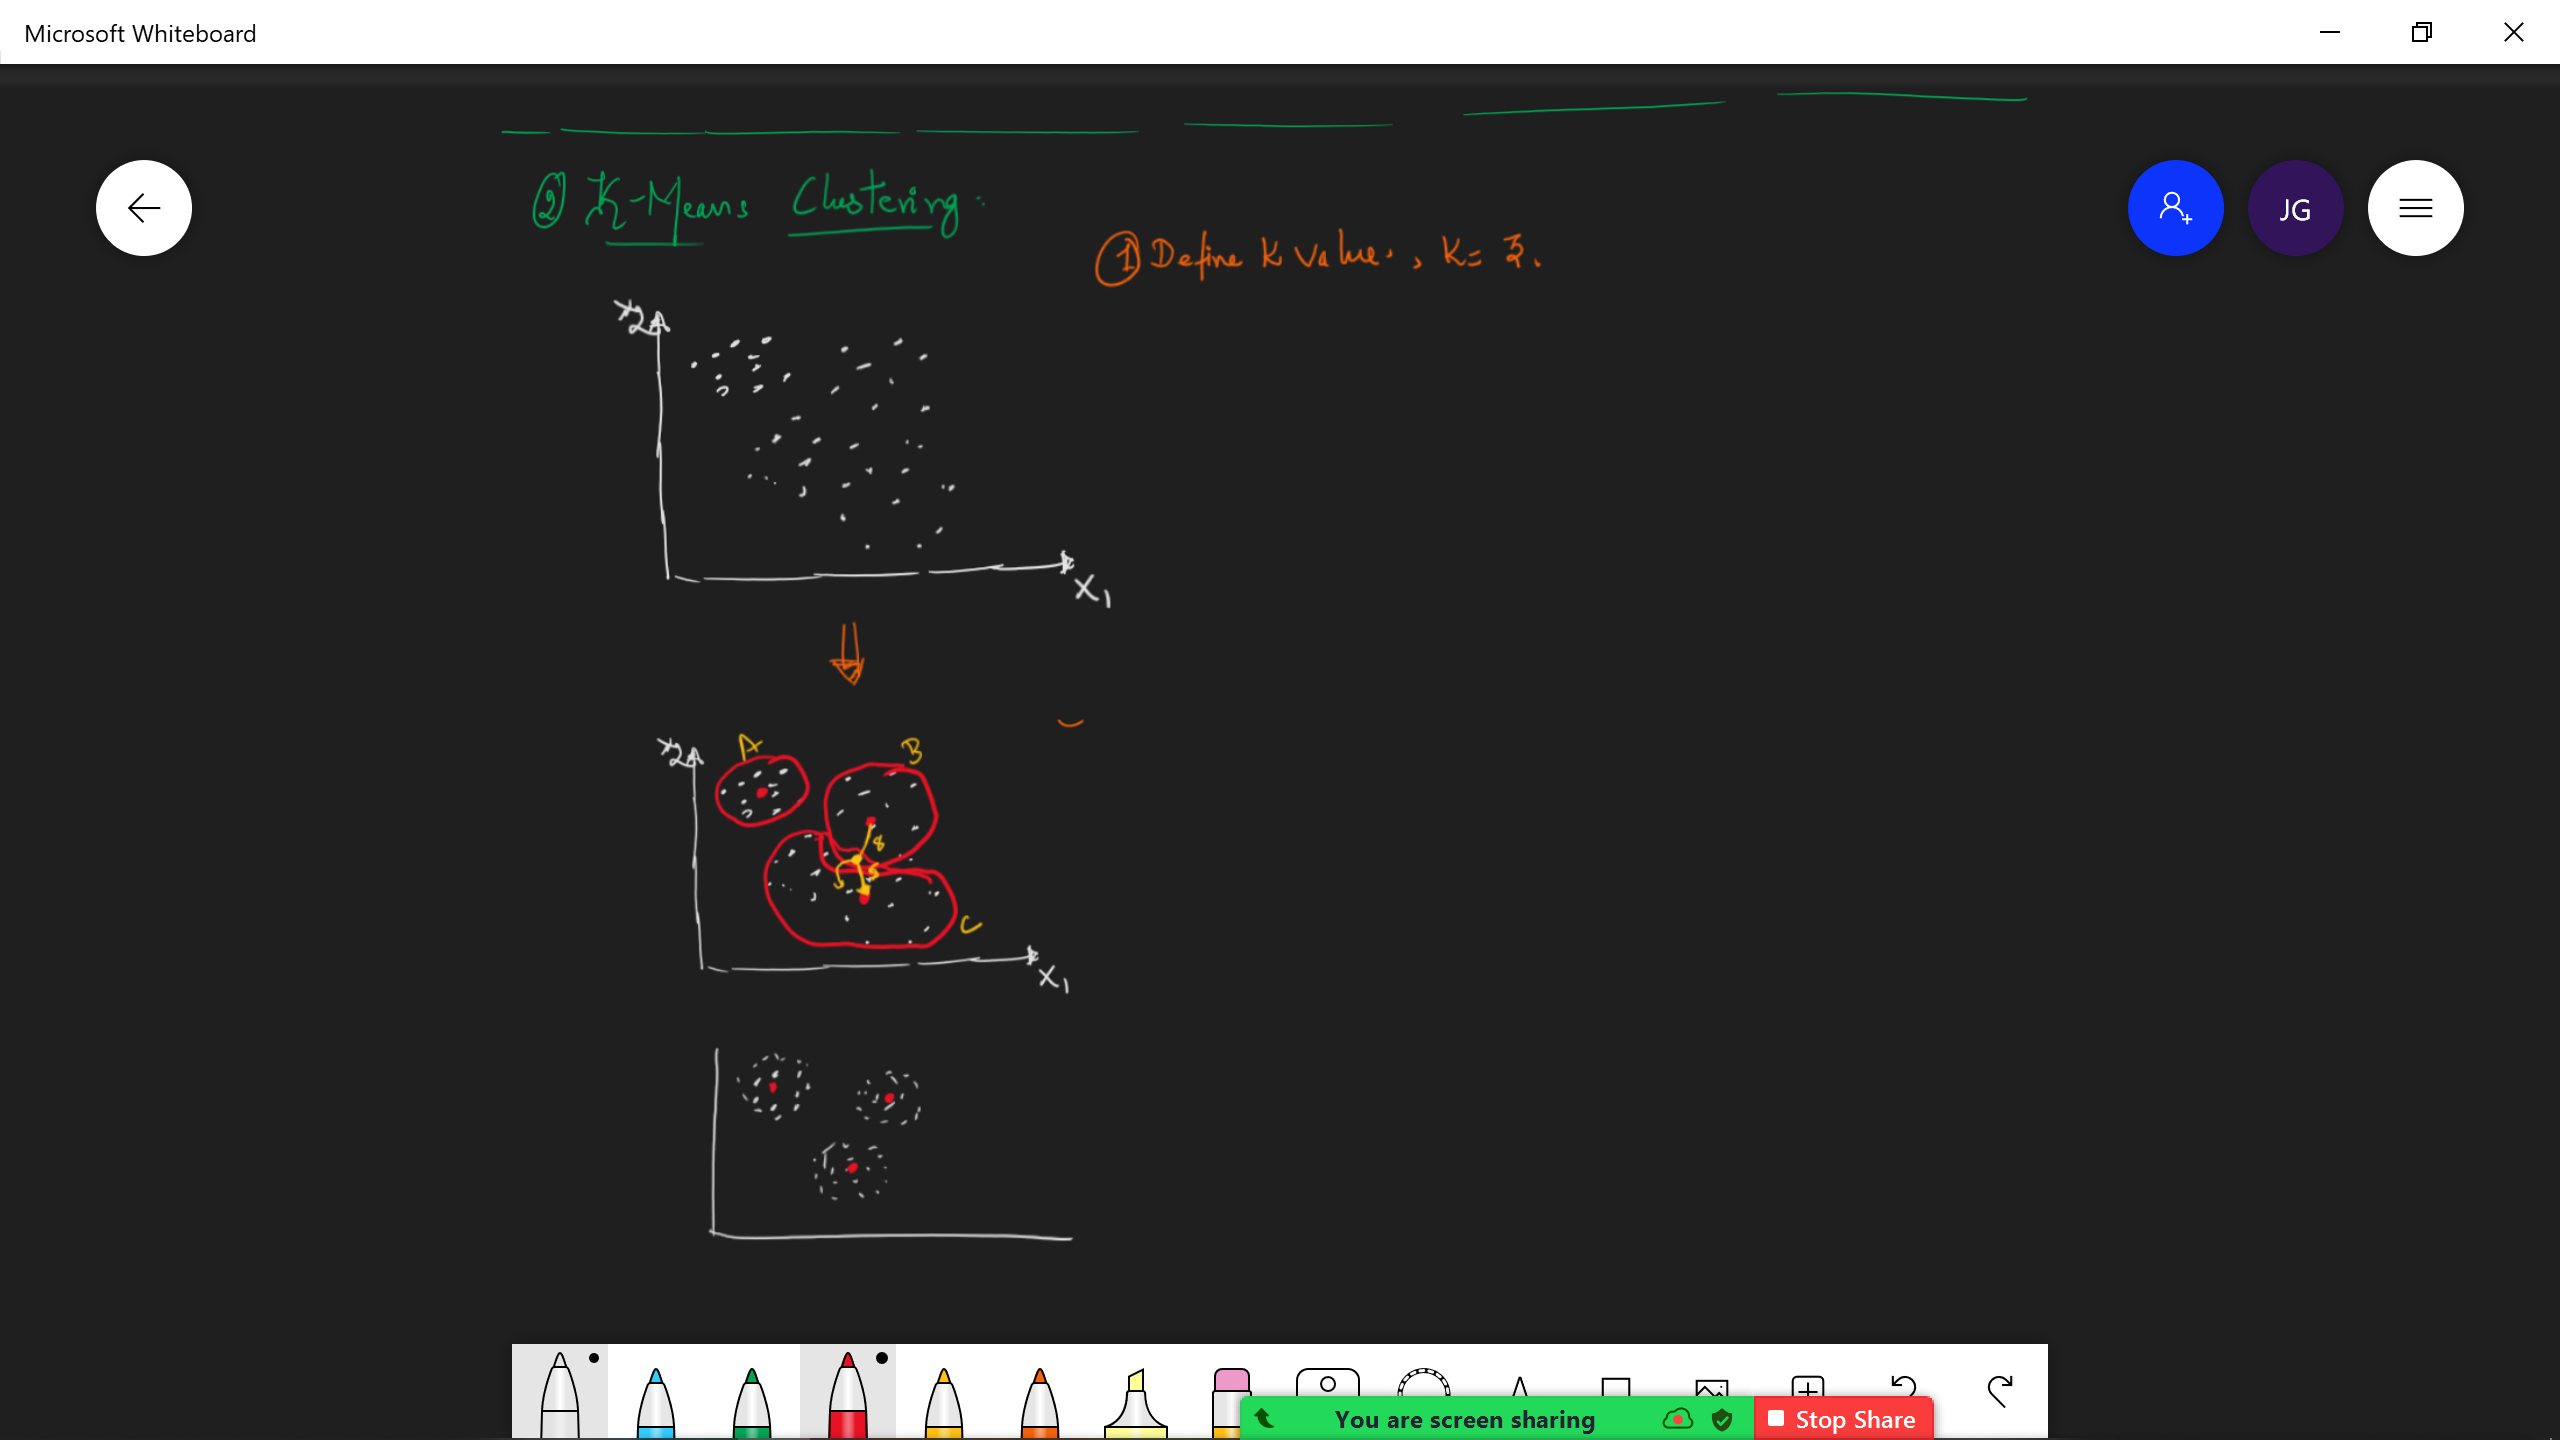 Microsoft Whiteboard
② K-Means Clustering:
JG
① Define K Value, K= 3.
x2
X1
x2
A
B
8
5
C
X1
You are screen sharing
Stop Share